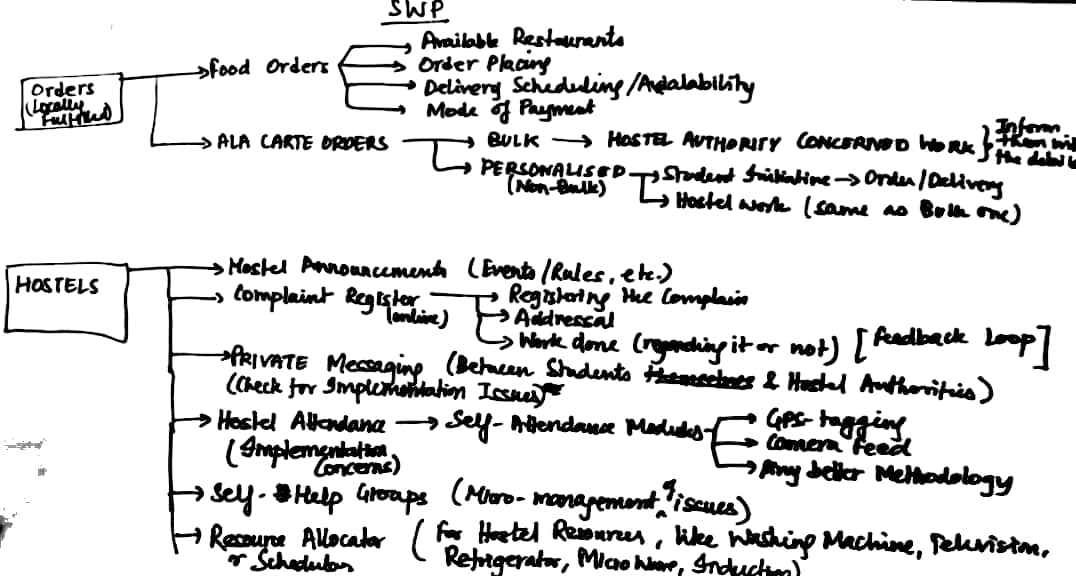 SWP
Orders
(Locally
Fulfilled)
Food Orders
Available Restaurants
Order Placing
Delivery Scheduling/Avialability
Mode of Payment
ALA CARTE ORDERS
BULK → HOSTEL AUTHORITY CONCERNED WORK } Inform
them
the
PERSONALISED
(Non-Bulk)
Student Initiative → Order/Delivery
Hostel work (same as Bulk one)
HOSTELS
Hostel Announcements (Events/Rules, etc.)
Complaint Register
(online)
Registering the Complain
Addressal
Work done (regarding it or not) [Feedback Loop]
PRIVATE Messaging (Between Students themselves & Hostel Authorities)
(Check for Implementation Issues)
Hostel Attendance → Self-Attendance Modules
(Implementation
Concerns)
GPS-tagging
Camera Feed
Any better Methodology
Self-Help Groups (Micro-management of issues)
Resource Allocator (for Hostel Resources, like Washing Machine, Television,
or Scheduler
Refrigerator, Microwave, Induction)